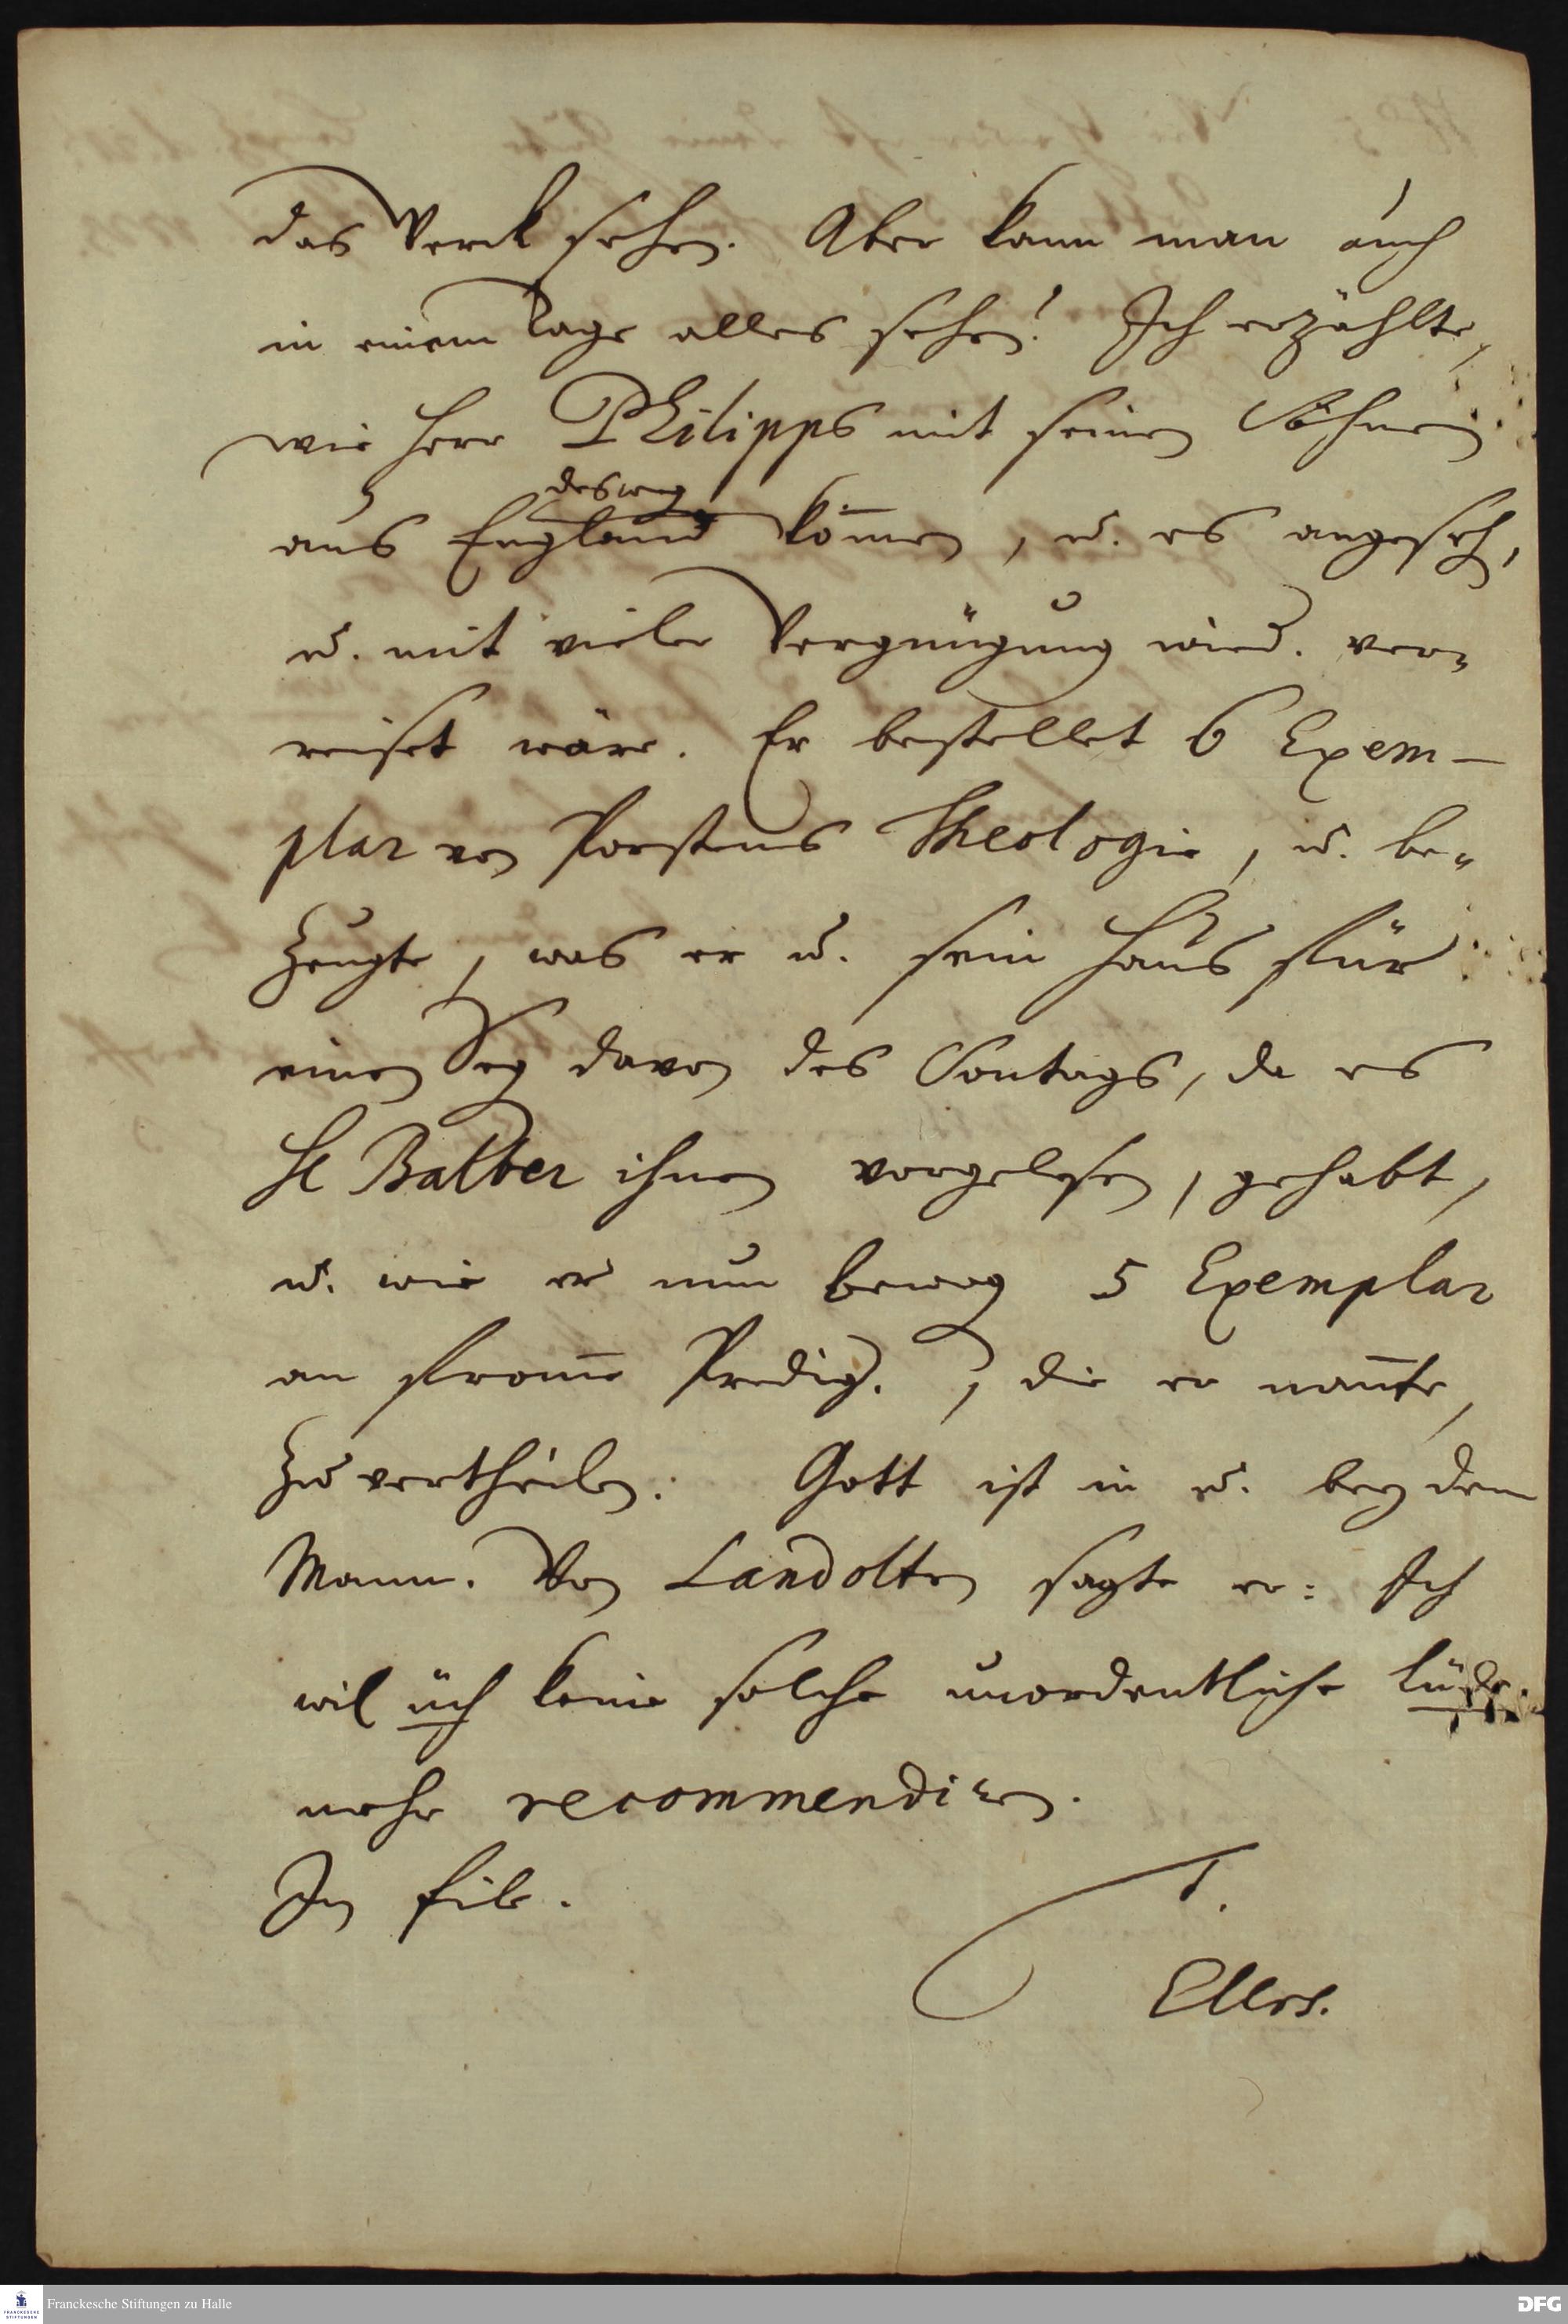 das Werck sehen. Aber kann man auch
in einem Tage alles sehen! Ich erzählte,
wie Herr Philipps mit seinen Söhnen
desweg
aus England kom̅en, u. es angeseh,
u. mit vieler Vergnügung wied. ver-
reiset wäre. Er bestellet 6 Exem-
plar von Porstens Theologie, u. be-
zeugte, was er u. sein Haus für
einen Seg davon des Sontags, da es
H Balber ihnen vorgelesen, gehabt,
u. wie er nun beweg 5 Exemplar
an from̅e Predig., die er nan̅te,
zu vertheilen. Gott ist in u. bey dem
Mann. Von Landolten sagte er: Ich
wil üch keine solche unordentliche Lüde
mehr recommendiren.
In Eile.
T.
Ellers.
Franckesche Stiftungen zu Halle
FRANCKESCHE STIFTUNGEN
DFG